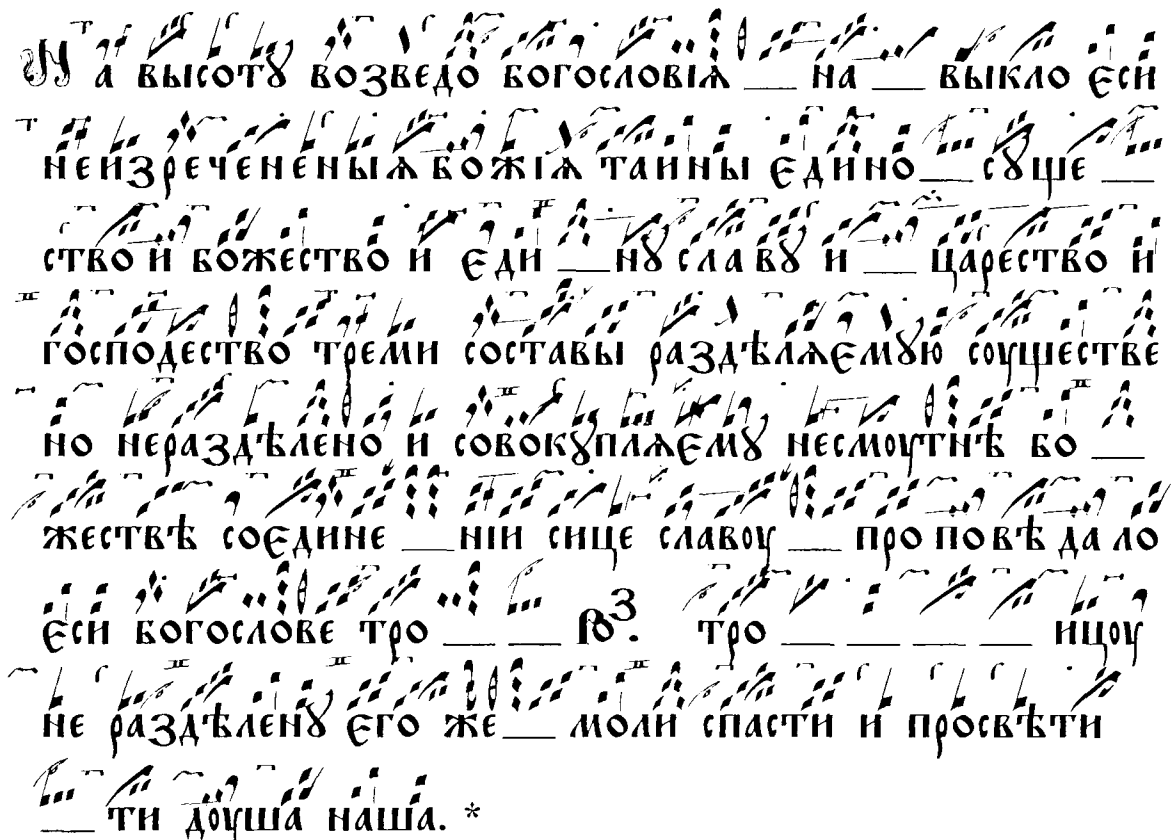 На высотꙋ возведо богословіѧ __ на __ выкло єси
неизречененыѧ божіѧ таины єдино __ сꙋще __
ство и божество и єди __ нꙋ славꙋ и __ царество и
господество треми составы раздѣлѧємꙋю соуществе
но нераздѣлено и совокꙋплѧємꙋ несмоутнѣ бо __
жествѣ соєдине __ ніи сице славоу __ проповѣдало
єси богослове тро __ __ во҃з. тро __ __ __ __ ицоу
не раздѣленꙋ єго же __ моли спасти и просвѣти
__ ти доуша наша. *